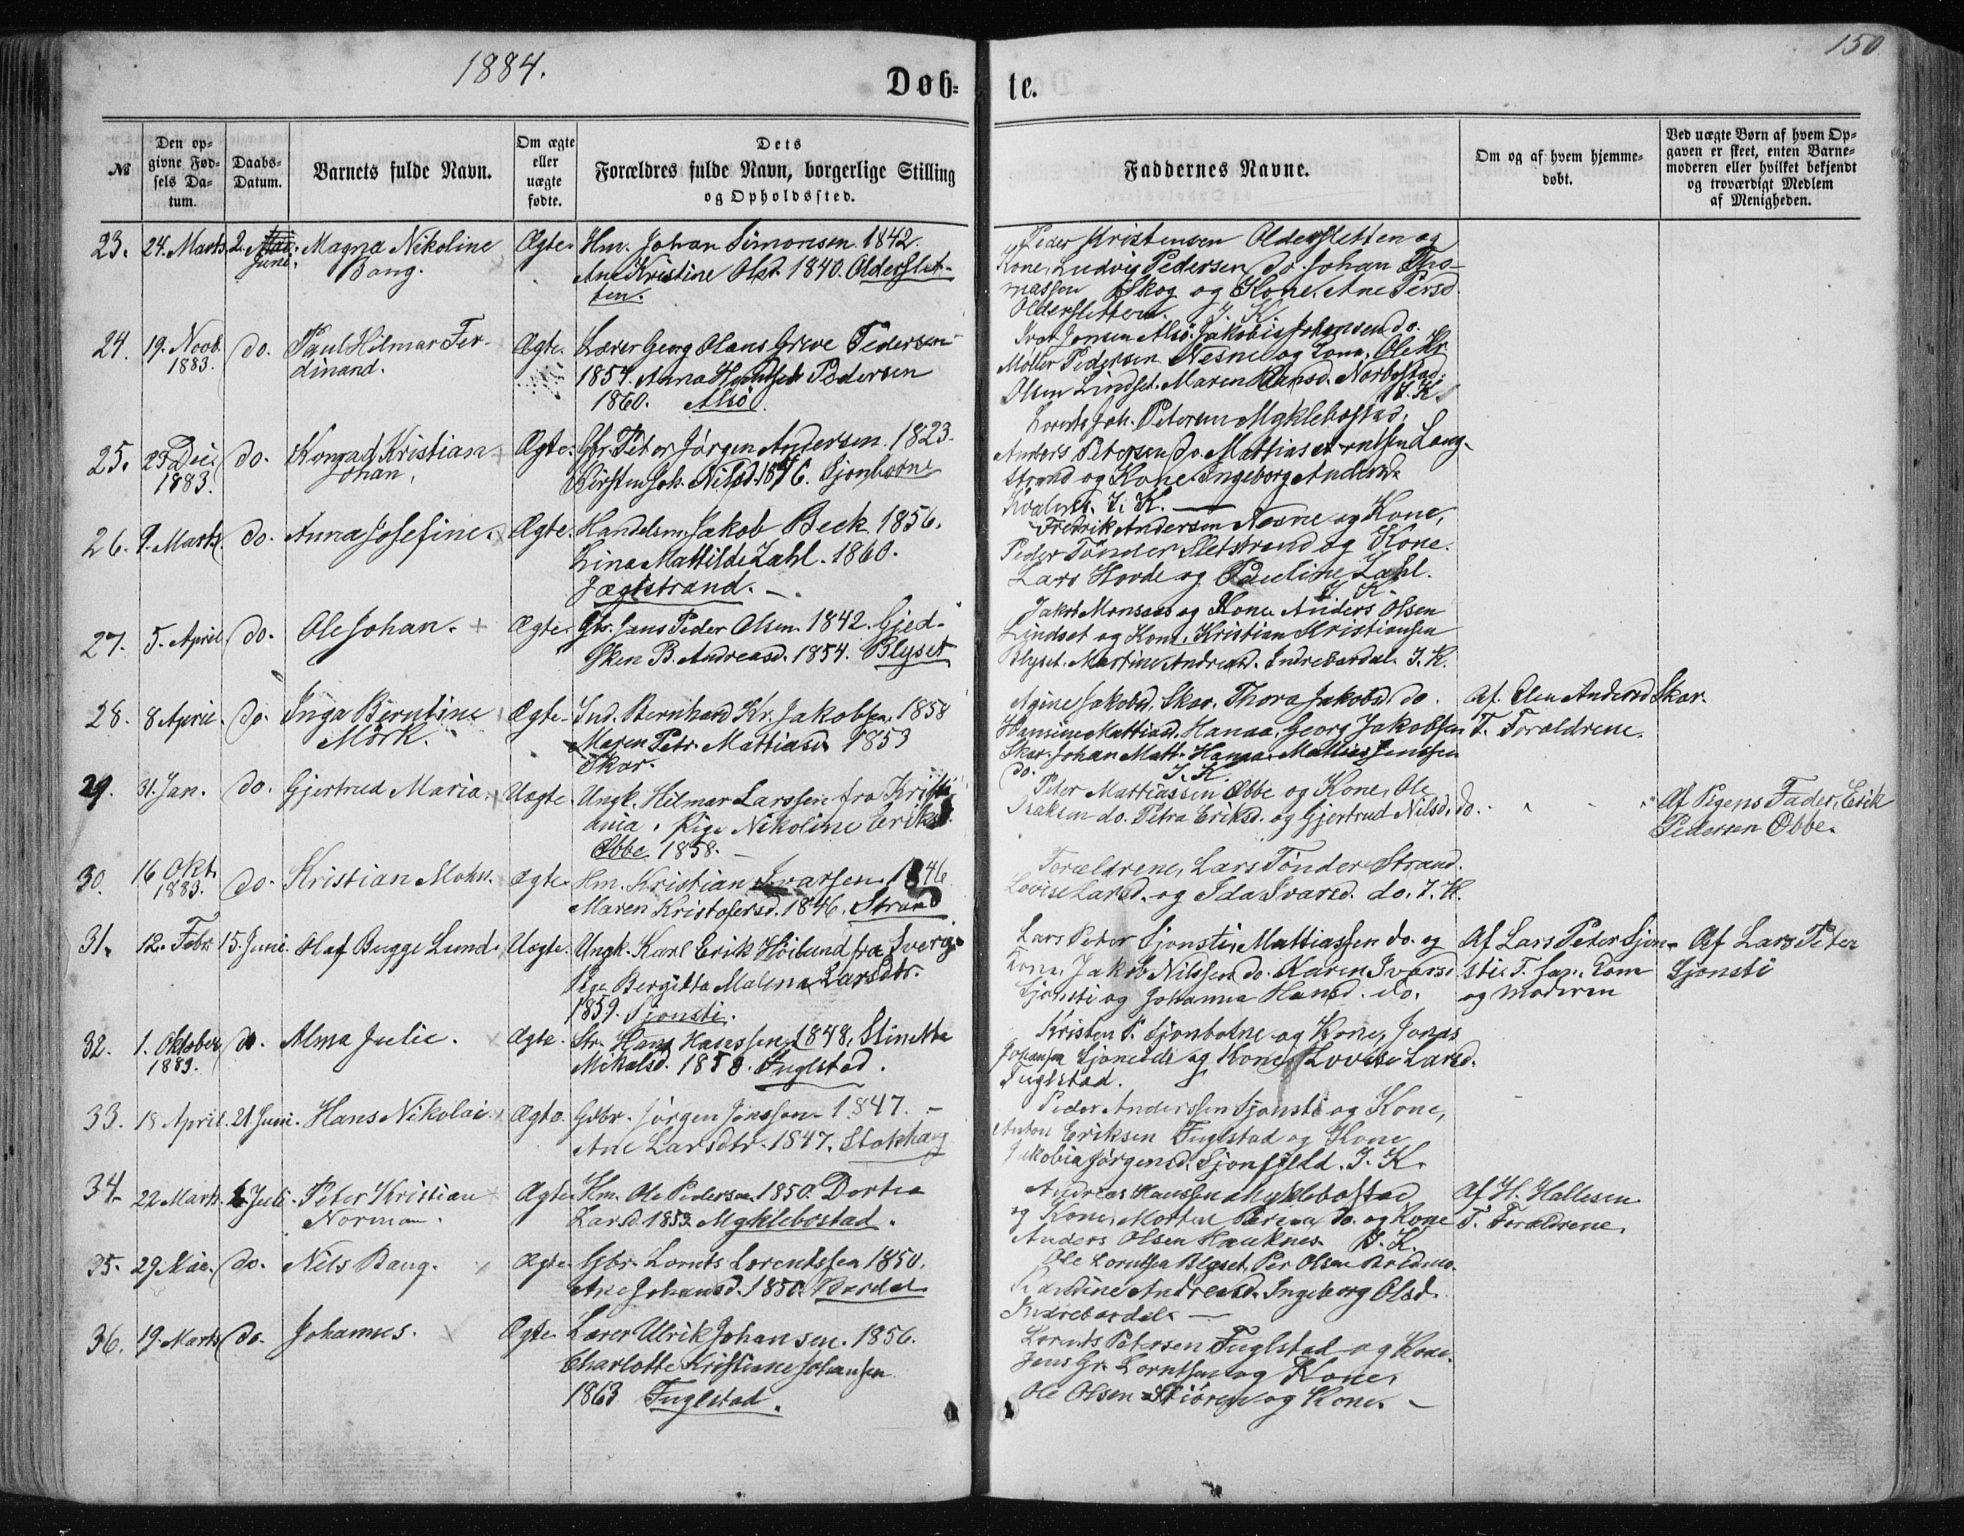 1884.
150
Døb-
te.
№
Den op-
givne Fød-
sels Da-
tum.
Daabs-
Datum.
Barnets fulde Navn.
Om ægte
eller
uægte
fødte.
Dets
Forældres fulde Navn, borgerlige Stilling
og Opholdssted.
Faddernes Navne.
Om og af hvem hjemme-
døbt.
Ved uægte Børn af hvem Op-
gaven er skeet, enten Barne-
moderen eller hvilket bekjendt
og troværdigt Medlem
af Menigheden.
23. 24. Marts. 2. Mai Juni. Magna Nikoline
Bang.
Ægte. Hm. Johan Simonsen. 1842.
Ane Kristine Olsd. 1840. Oldersslet-
ten.
Peder Kristensen Olderssletten og
Kone, Ludvig Pedersen do. Johan Tho-
massen Skog og Kone. Ane Persd.
Olderssletten. I. K.
24. 19. Novb. 1883. do. Paul Hilmar Fer-
dinand.
Ægte. Lærer Georg Olaus Greve Pedersen
1854. Anna Pedersen
1860. Alsø.
Ivar Jonsen Alsø. Jakob Johansen do.
Møller Pedersen Nesne og Kone. Ole Kr.
Olsen Lindset. Maren Hansd. Norbostad.
I. K.
25. 23 Dec. 1883. do. Konrad Kristian
Johan.
Ægte. Gbr. Peter Jørgen Andersen. 1823.
Kirsten Joh. Nilsd. 1846. Sjonbotne
Lornts Joh. Petersen Myklebostad,
Anders Petersen do. Mattias Arntsen Lang-
strand og Kone. Ingeborg Andersd.
I. K.
26. 9. Marts do. Anna Josefine.
Ægte. Handelsm Jakob Beck 1856.
Lina Mattilde Zahl. 1860.
Jægtstrand.
Fredrik Andersen Nesne og Kone,
Peder Tønder Sletstrand og Kone.
Lars Horde og Pauline Zahl.
I. K.
27. 5. April do. Ole Johan. +
Ægte. Gbr. Jens Peder Olsen. 1842. Gjed-
sken B. Andreasd. 1854. Blyset
Jakob Monsens og Kone Anders Olsen
Lindset og Kone. Kristian Kristiansen
Blyset. Martine Andreasd. Indrebardal. I. K.
28. 8 April do. Inga Berntine
Mørk.
Ægte. Ind. Bernhard Kr. Jakobsen. 1858
Maren Petr. Mattiasd. 1853
Skar.
Agine Jakobsd. Skar. Thora Jakobsd. do.
Hansine Mattiasd. Hanaa. Georg Jakobsen
Skar. Johan Matt. Hanaa. Mattias Jenssen
do. I. K.
Af. Elen Andersd Skar.
T. Forældrene.
29. 31. Jan. do. Gjertrud Maria.
Uægte. Ungk. Hilmar Larssen fra Kristi
ania. Pige Nikoline Eriksd.
Øbbe. 1858.
Peter Mattiassen Øbbe og Kone, Ole
Isaksen do. Petra Eriksd. og Gjertrud Nilsd. do.
Af Pigens Fader, Erik
Pedersen Øbbe.
30. 16 Okt. 1883. do. Kristian Mohn.
Ægte. Hm. Kristian Ivarsen. 1846
Maren Kristofersd. 1846. Strand
Forældrene, Lars Tønder Strand.
Lovise Larsd. og Ida Ivarsd. do. I. K.
31. 12. Febr. 15. Juni. Olaf Bugge Lund.
Uægte. Ungk. Karl Erik Høilund fra Sverg.
Pige Bergitta Malena Larsdtr.
1859. Sjonsti.
Lars Peter Sjonsti. Mattiassen do. og
Kone. Jakob Nilssen do. Karen Ivarsd
Sjonsti og Johanna Hansd. do.
Af Lars Peter Sjon-
sti. T. ham
og Moderen
Af Lars Peter
Sjonsti
32. 1. Oktober 1883. do. Alma Julie.
Ægte. Str. Hans Hanssen. 1848, Stinetta
Mikalsd. 1858. Fuglstad.
Kristen P. Sjonbotne og Kone, Jonas
Johansen og Kone, Lovise Larsd.
Fuglstad.
33. 18 April. 21 Juni. Hans Nikolai.
Ægte. Gdbr. Jørgen Jonssen. 1847.
Ane Larsdtr. 1847. Stokhaug
Peder Anderssen Sjonsti og Kone,
Anton Eriksen Fuglstad og Kone
Jakobia Jørgensd. Sjonfjeld. I. K.
34. 22 Marts. Juli. Peter Kristian
Norman.
Ægte. Hm. Ole Pedersen 1850. Dortea
Larsd. 1853. Myklebostad.
Andreas Hanssen Myklebostad
og Kone, Morten do. og Kone
Anders Olsen Hauknes. I. K.
Af H. Hallesen.
T. Forældrene.
35. 29 Mai. do. Nils Bang.
Ægte. Gbr. Lornts Lorentssen 1850.
Ane Johansd. 1850. Bardal
Ole Lorntsen Blyset, Per Olsen
Andreasd. Ingeborg Olsd.
Indrebardal.
36. 19. Marts do. Johannes.
Ægte. Lærer Ulrik Johansen. 1856.
Charlotte Kristiane Johansen
1863 Fuglstad.
Lornts Petersen Fuglstad og Kone.
Jens Gr. Lorntsen og Kone,
Ole Olsen og Kone.